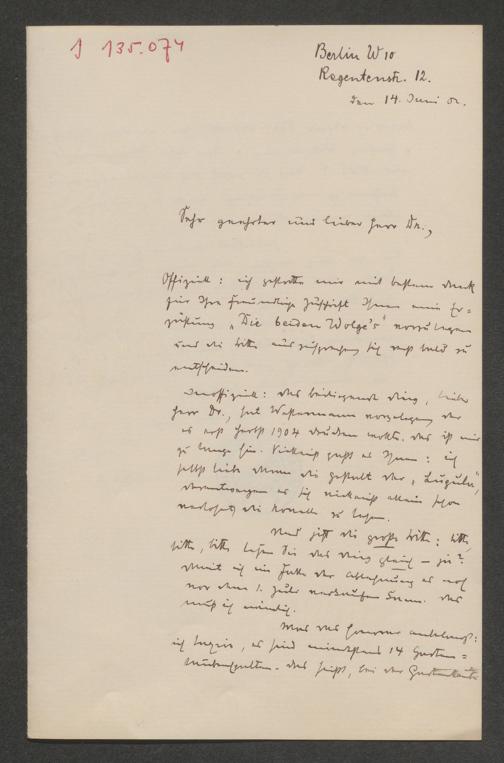 J 135.074
Berlin W 10
Regentenstr. 12.
Den 14. Juni 02.
Sehr geehrter und lieber Herr Dr.,
Offiziell: ich gestatte mir mit bestem Dank
für Ihre freundliche Zuschrift Ihnen meine Er=
zählung „Die beiden Wolge's" vorzulegen
und die Bitte auszusprechen sich recht bald zu
entscheiden.
Inoffiziell: das beiliegende Ding, lieber
Herr Dr., hat Westermann vorgelegen der
es erst Herbst 1904 drucken wollte. Das ist mir
zu lange hin. Vielleicht paßt es Ihnen: ich
selbst liebe darin die Gestalt der
es sich vielleicht allein schon
die Novelle zu lesen.
Und jetzt die große Bitte: bitte,
bitte, bitte lesen Sie das Ding gleich – ja?
damit ich im Falle der Ablehnung es noch
vor dem 1. Juli verkaufen kann. Das
muß ich nämlich.
Was das Honorar anbelangt:
ich, es sind mindestens 14 Garten=
laubenspalten. Das heißt, bei der Gartenlaube